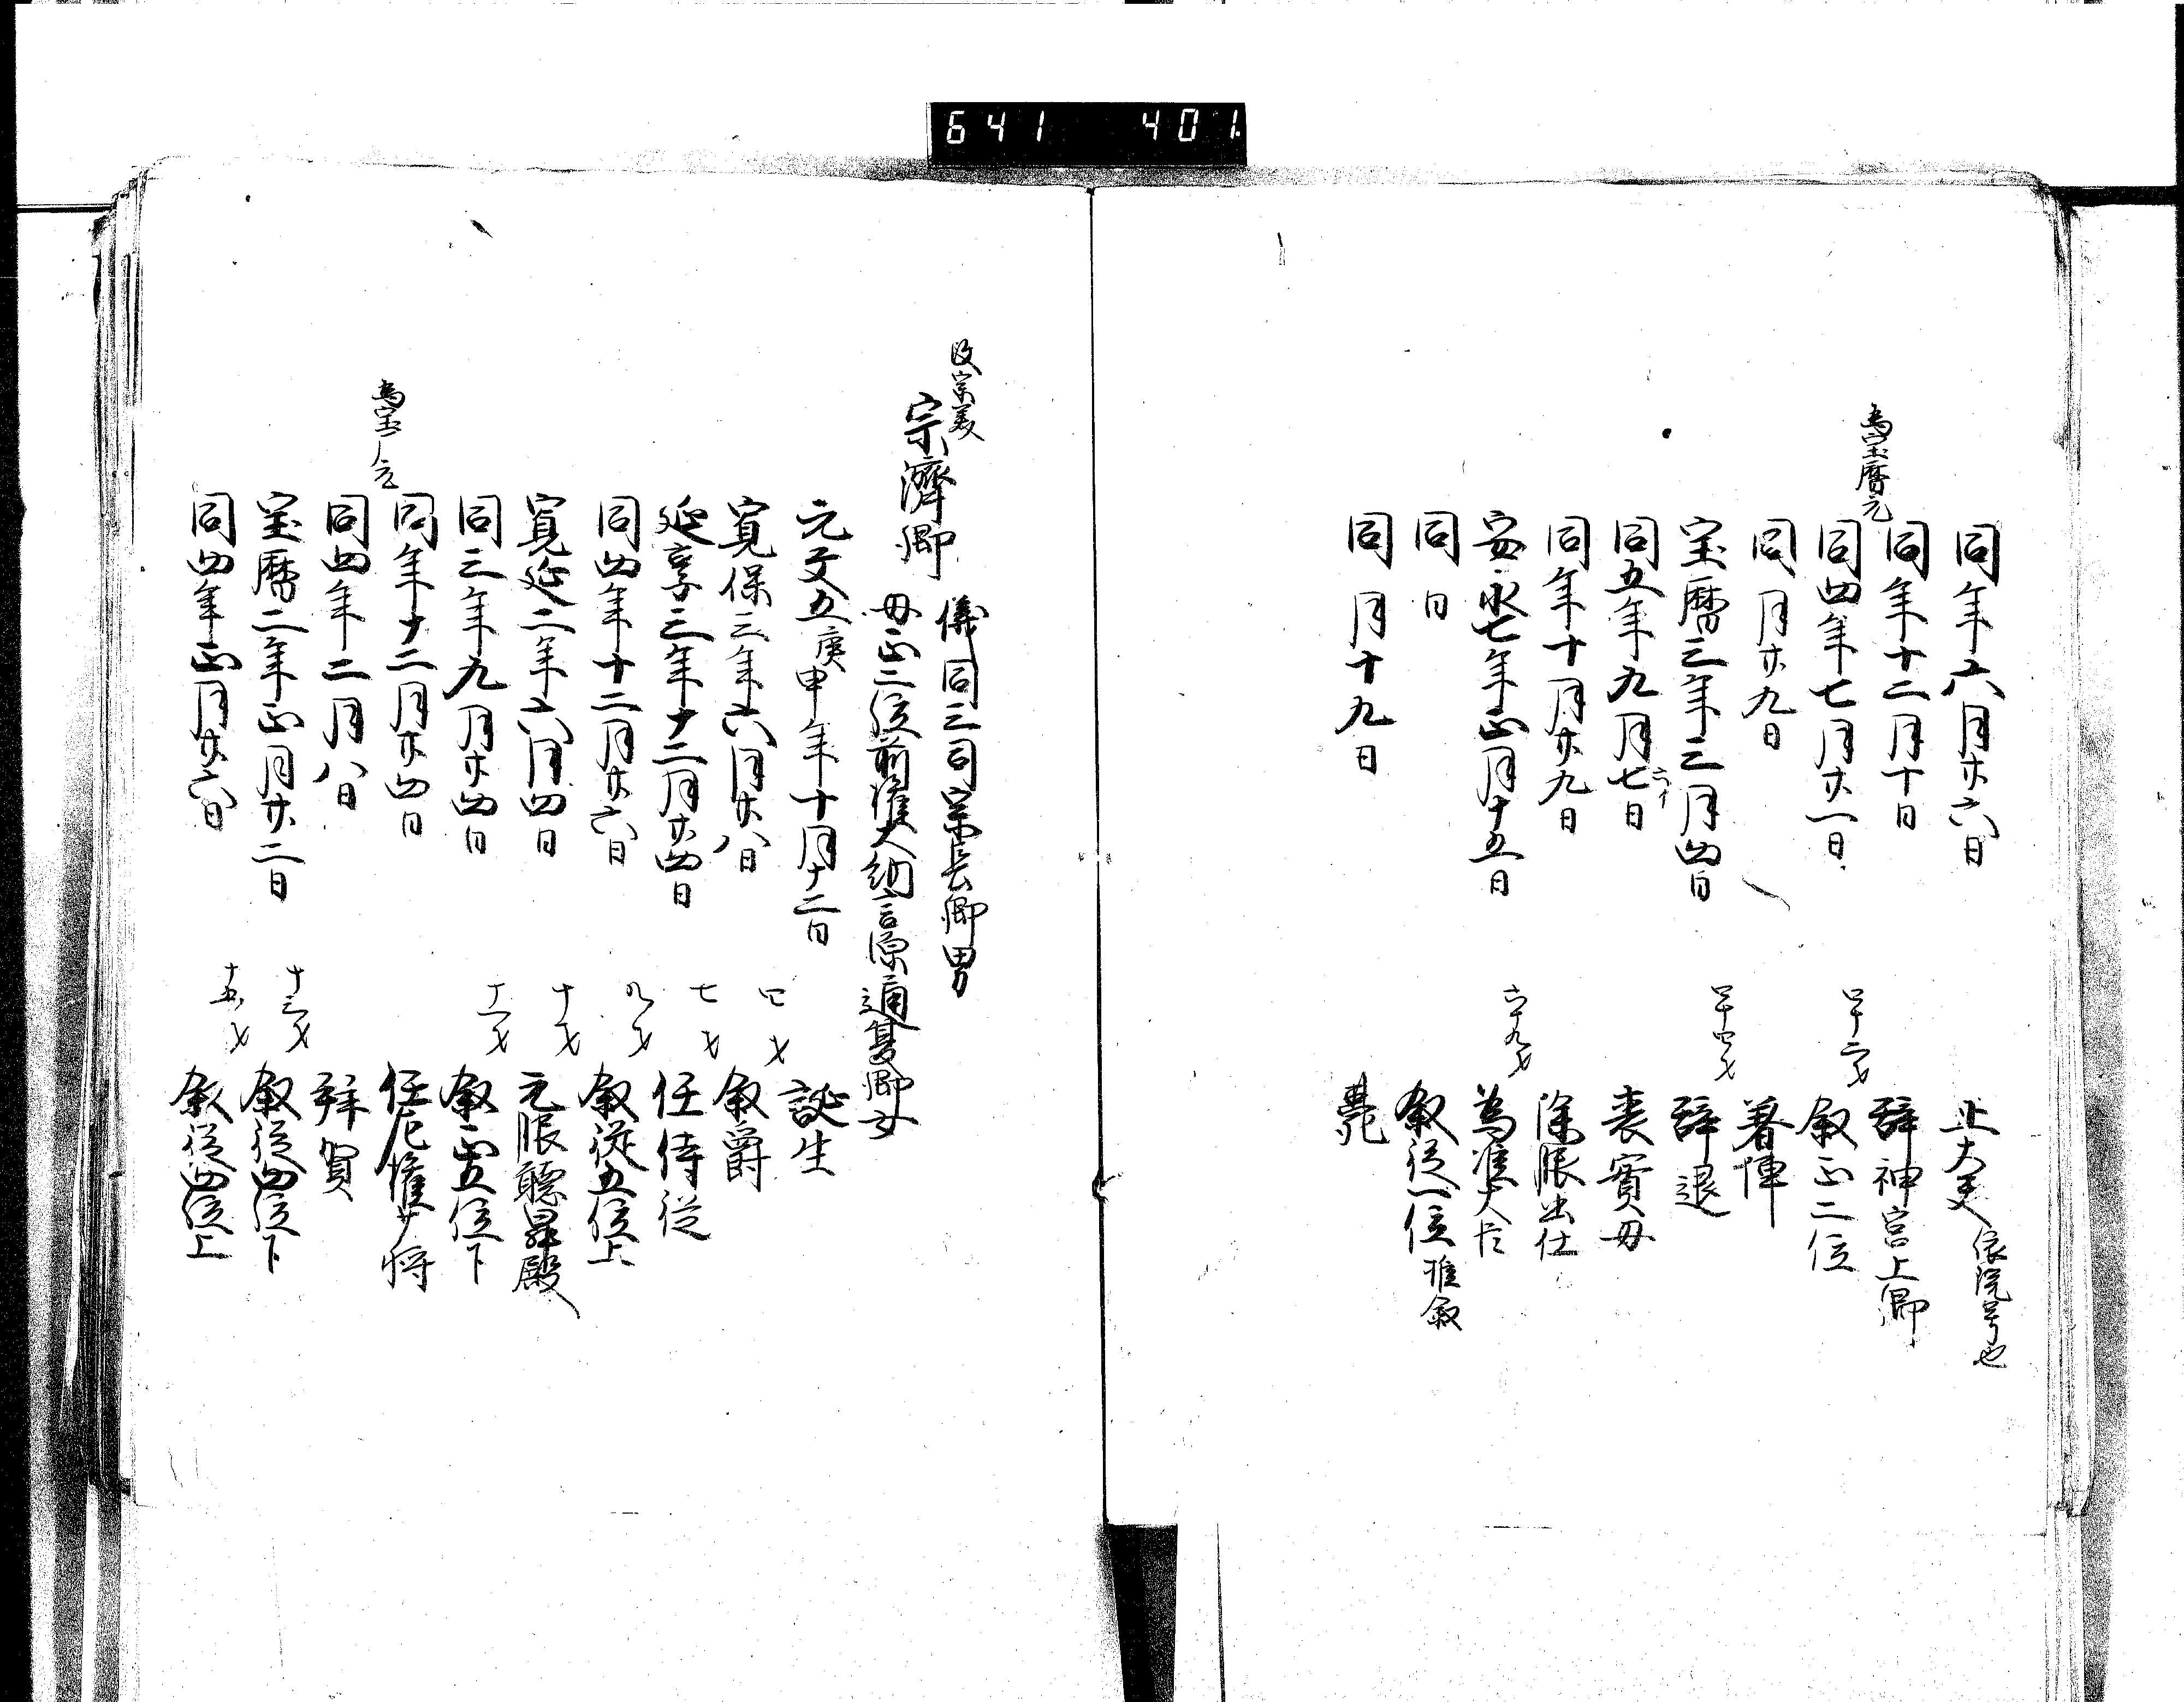 641 401
同年六月廿六日 止大夫 依院号也
同年十二月十日 辞神宮上卿
為宝暦元
同四年七月廿一日 四十二才 叙正二位
同月廿九日 着陣
宝暦三年三月四日 四十四才 辞退
同五年九月七日 六イ 喪実母
同年十月廿九日 除服出仕
安永七年正月十五日 六十九才 為准大臣
同日 叙従一位 推叙
同月十九日 薨
改宗美
宗濟卿 儀同三司宗長卿男
母正二位前権大納言源通夏卿女
元文五庚申年十月十二日 誕生
寛保三年六月廿八日 四才 叙爵
延享三年十二月廿四日 七才 任侍従
同四年十二月廿六日 九才 叙従五位上
寛延二年六月四日 十才 元服聴昇殿
同三年九月廿四日 十一才 叙正五位下
同年十二月廿四日 任左権少将
為宝ノ元
同四年二月八日 拝賀
宝暦二年正月廿二日 十三才 叙従四位下
同四年正月廿六日 十五才 叙従四位上